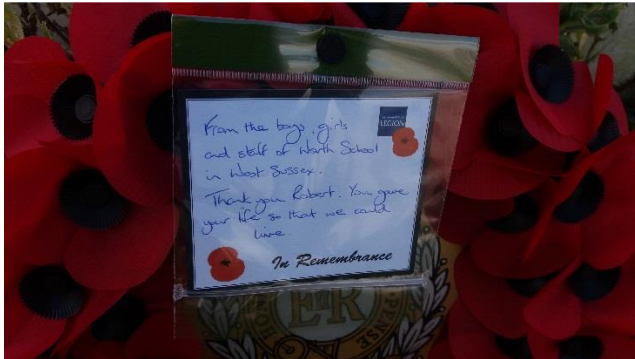 From the boys, girls
and staff of Worth School
in West Sussex.
Thank you Robert. You gave
your life so that we could
live.
LEGION
In Remembrance